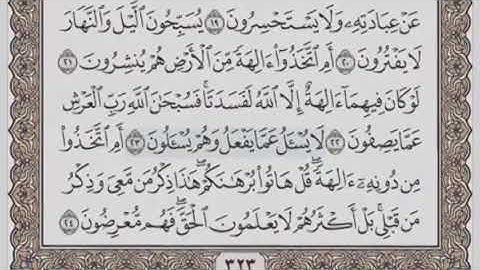 عَنْ عِبَادَتِهِۦ وَلَا يَسْتَحْسِرُونَ ١٩ يُسَبِّحُونَ ٱلَّيْلَ وَٱلنَّهَارَ
لَا يَفْتُرُونَ ٢٠ أَمِ ٱتَّخَذُوٓا۟ ءَالِهَةً مِّنَ ٱلْأَرْضِ هُمْ يُنشِرُونَ ٢١
لَوْ كَانَ فِيهِمَآ ءَالِهَةٌ إِلَّا ٱللَّهُ لَفَسَدَتَا ۚ فَسُبْحَٰنَ ٱللَّهِ رَبِّ ٱلْعَرْشِ
عَمَّا يَصِفُونَ ٢٢ لَا يُسْـَٔلُ عَمَّا يَفْعَلُ وَهُمْ يُسْـَٔلُونَ ٢٣ أَمِ ٱتَّخَذُوا۟
مِن دُونِهِۦٓ ءَالِهَةً ۖ قُلْ هَاتُوا۟ بُرْهَٰنَكُمْ ۖ هَٰذَا ذِكْرُ مَن مَّعِىَ وَذِكْرُ
مَن قَبْلِى ۗ بَلْ أَكْثَرُهُمْ لَا يَعْلَمُونَ ٱلْحَقَّ ۖ فَهُم مُّعْرِضُونَ ٢٤
٣٢٣